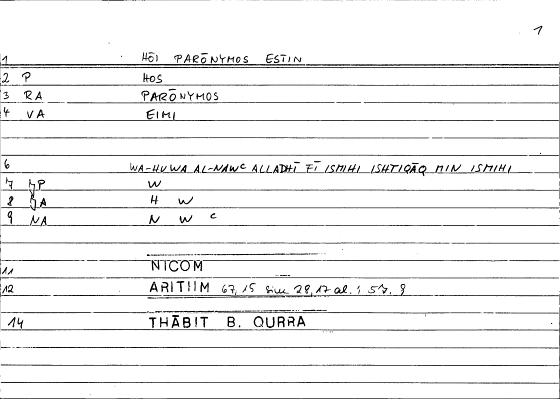 1
1 HŌI PARŌNYMOS ESTIN
2 P HOS
3 RA PARŌNYMOS
4 VA EIMI
6 WA-HUWA AL-NAWC ALLADHĪ FĪ ISMIHI ISHTIQĀQ MIN ISMIHI
7 P W
8 A H W
9 NA N W C
11 NICOM
12 ARITIIM 67,15 sim 28,17 al. ; 57. 9
14 THĀBIT B. QURRA